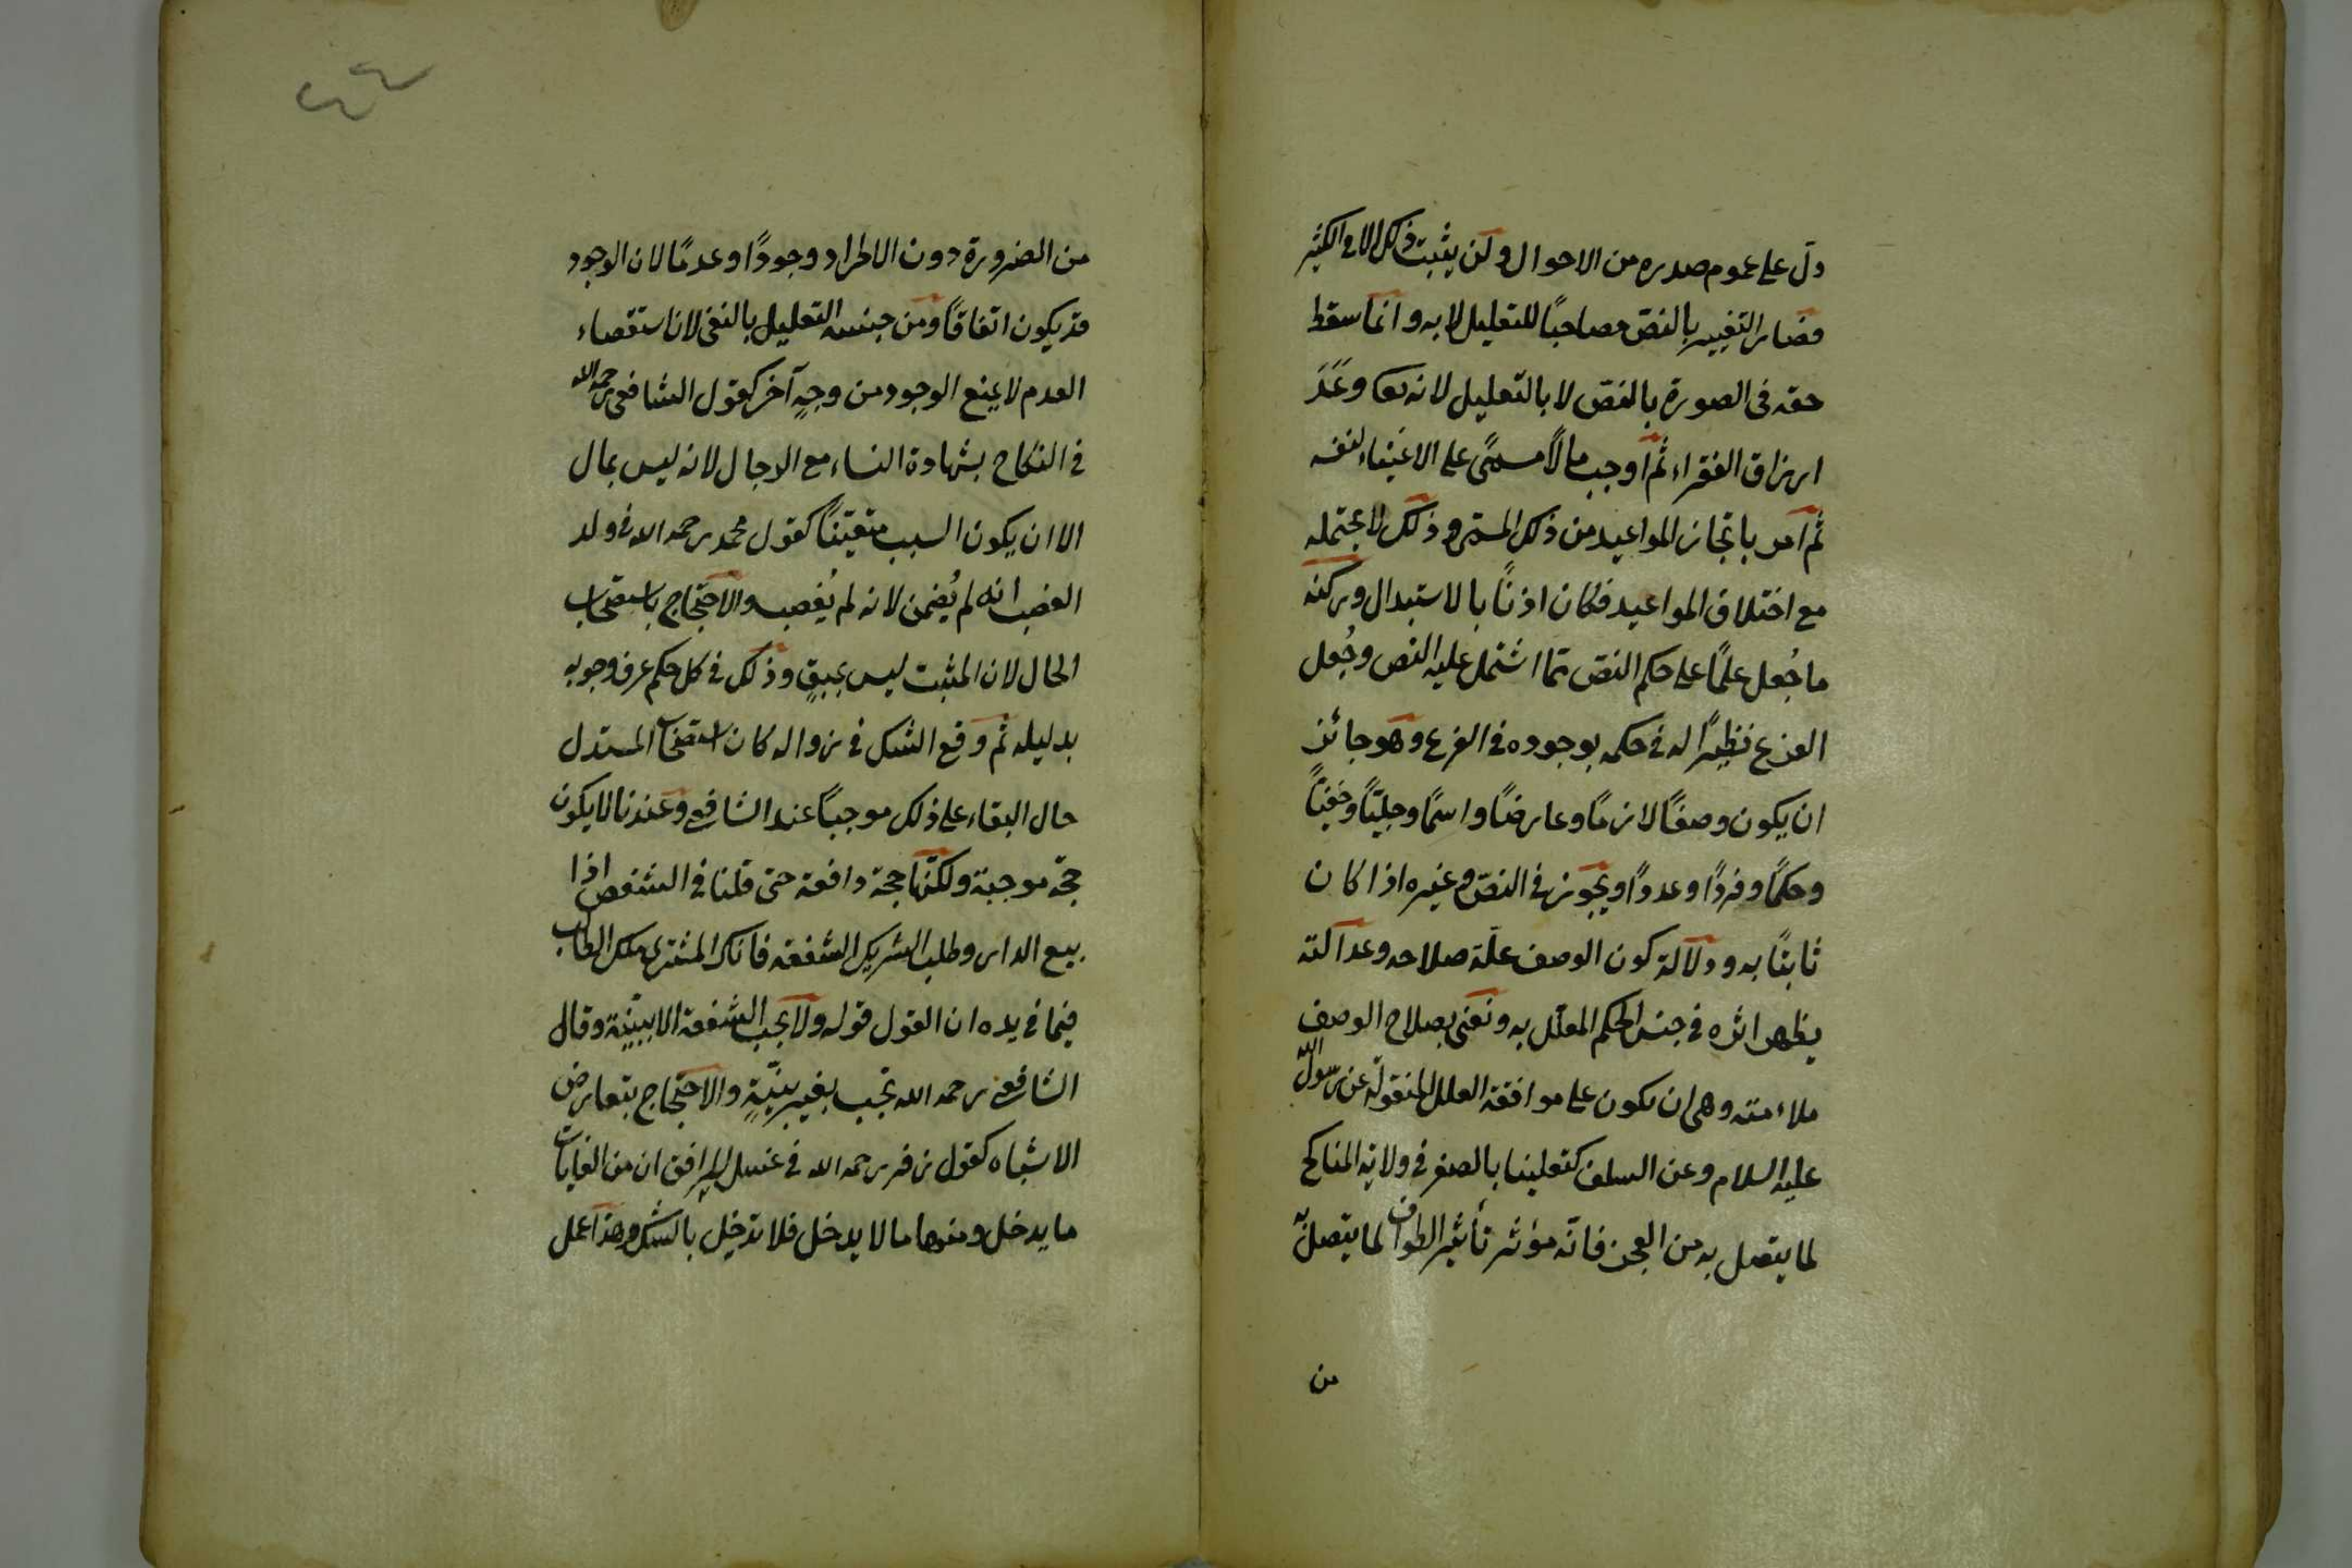 دلّ على عموم صدره من الاحوال ولن يثبت ذلك الا فى الكثير
فصار التغيير بالنصّ مصاحبًا للتعليل لا به وانما سقط
حقه فى الصورة بالنصّ لا بالتعليل لانه تعا وعَدَ
ارزاق الفقراء ثم اوجب مالًا مسمّى على الاغنياء لنفسه
ثم امر بانجاز المواعيد من ذلك المسمّى وذلك لا يحتمله
مع اختلاف المواعيد فكان اذنًا بالاستبدال وركنه
ما جُعل علمًا على حكم النصّ ممّا اشتمل عليه النص وجُعل
الفرع نظيرًا له فى حكمه بوجوده فى الفرع وهو جائز
ان يكون وصفًا لازمًا وعارضًا واسمًا وجليًّا وخفيًّا
وحكمًا وفردًا وعددًا ويجوز فى النصّ وغيره اذا كان
ثابتًا به ودلالة كون الوصف علّة صلاحه وعدالته
يظهر اثره فى جنس الحكم المعلّل به ونعنى بصلاح الوصف
ملاءمته وهى ان يكون على موافقة العلل المنقولة عن رسول الله
عليه السلام وعن السلف كتعليلنا بالصغر فى ولاية المناكح
لما يتصل به من العجز فانّه مؤثر تأثير الطواف لما يتصل به
من
٤٤
من الضرورة دون الاطراد وجودًا وعدمًا لان الوجود
قد يكون اتفاقًا ومن جنسه التعليل بالنفى لان استقصاء
العدم لا يمنع الوجود من وجهٍ آخر كقول الشافعى رحمه الله
فى النكاح بشهادة النساء مع الرجال لانه ليس بمال
الا ان يكون السبب متعيّنًا كقول محمد رحمه الله فى ولد
الغصب انه لم يُضمن لانه لم يُغصب والاحتجاج باستصحاب
الحال لان المثبت ليس بمبقٍ وذلك فى كل حكم عرف وجوبه
بدليله ثم وقع الشك فى زواله كان استصحاب المستدل
حال البقاء على ذلك موجبًا عند الشافعى وعندنا لا يكون
حجّة موجبة ولكنّها حجة دافعة حتى قلنا فى الشقص اذا
بيع الدار وطلب الشريك الشفعة فانكر المشترى ملك الطالب
فيما فى يده ان القول قوله ولا يجب الشفعة الا ببيّنة وقال
الشافعى رحمه الله تجب بغير بيّنةٍ والاحتجاج بتعارض
الاشباه كقول زفر رحمه الله فى غسل المرافق ان من الغايات
ما يدخل ومنها ما لا يدخل فلا تدخل بالشك وهذا عمل